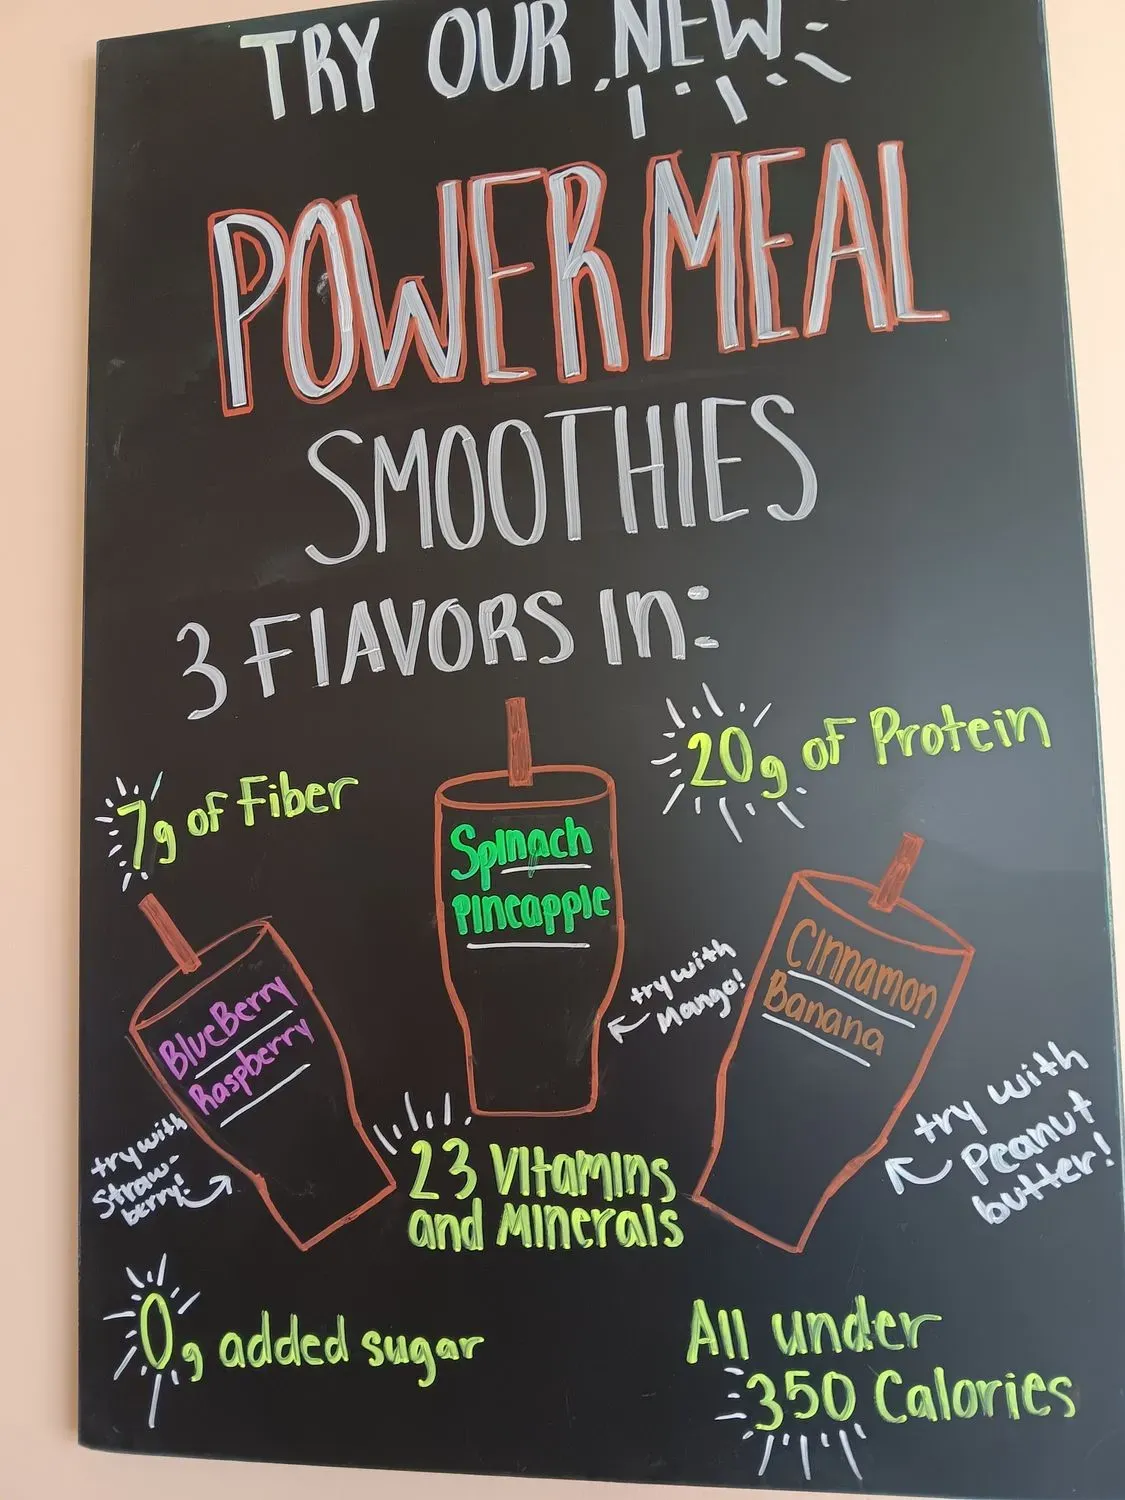 TRY OUR NEW
POWER MEAL
SMOOTHIES
3 FlAVORS In:
7g of Fiber
20g of Protein
Spinach
Pineapple
BlueBerry
Raspberry
Cinnamon
Banana
try with
Mango!
try with
Straw-
berry!
try with
Peanut
butter!
23 Vitamins
and Minerals
0g added sugar
All under
350 Calories